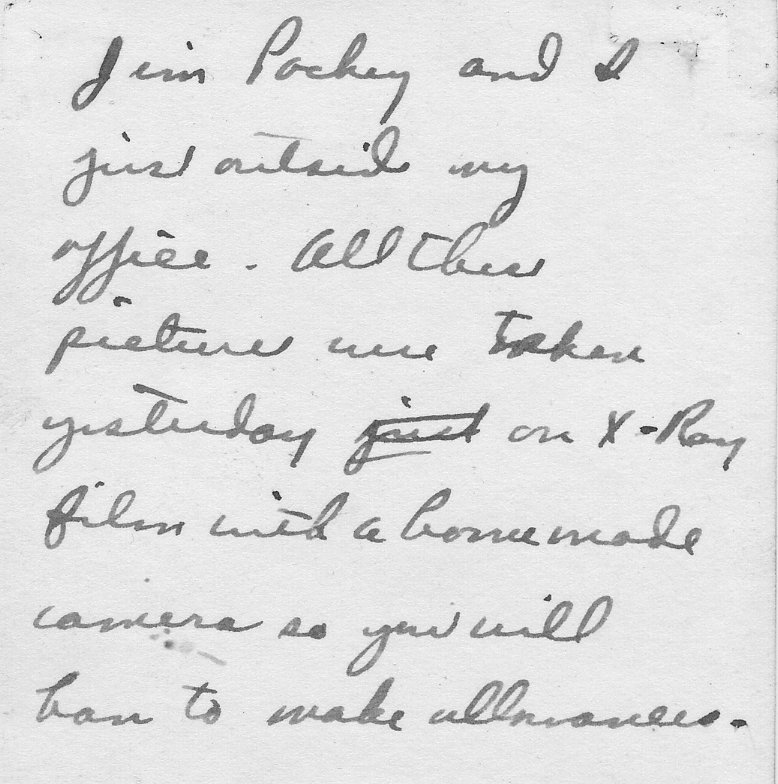 Jim Pockey and I
just outside my
office. All these
pictures were taken
yesterday just on X-Ray
film with a homemade
camera so you will
have to make allowances.